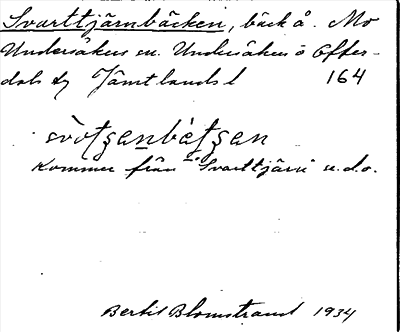 Svarttjärnbäcken, bäck å. Mo
Undersåkers sn. Undersåkers o Offer-
dals tg Jämtlands l 164
Kommer från "Svarttjärn" s.d.o.
Bertil Blomstrand 1934